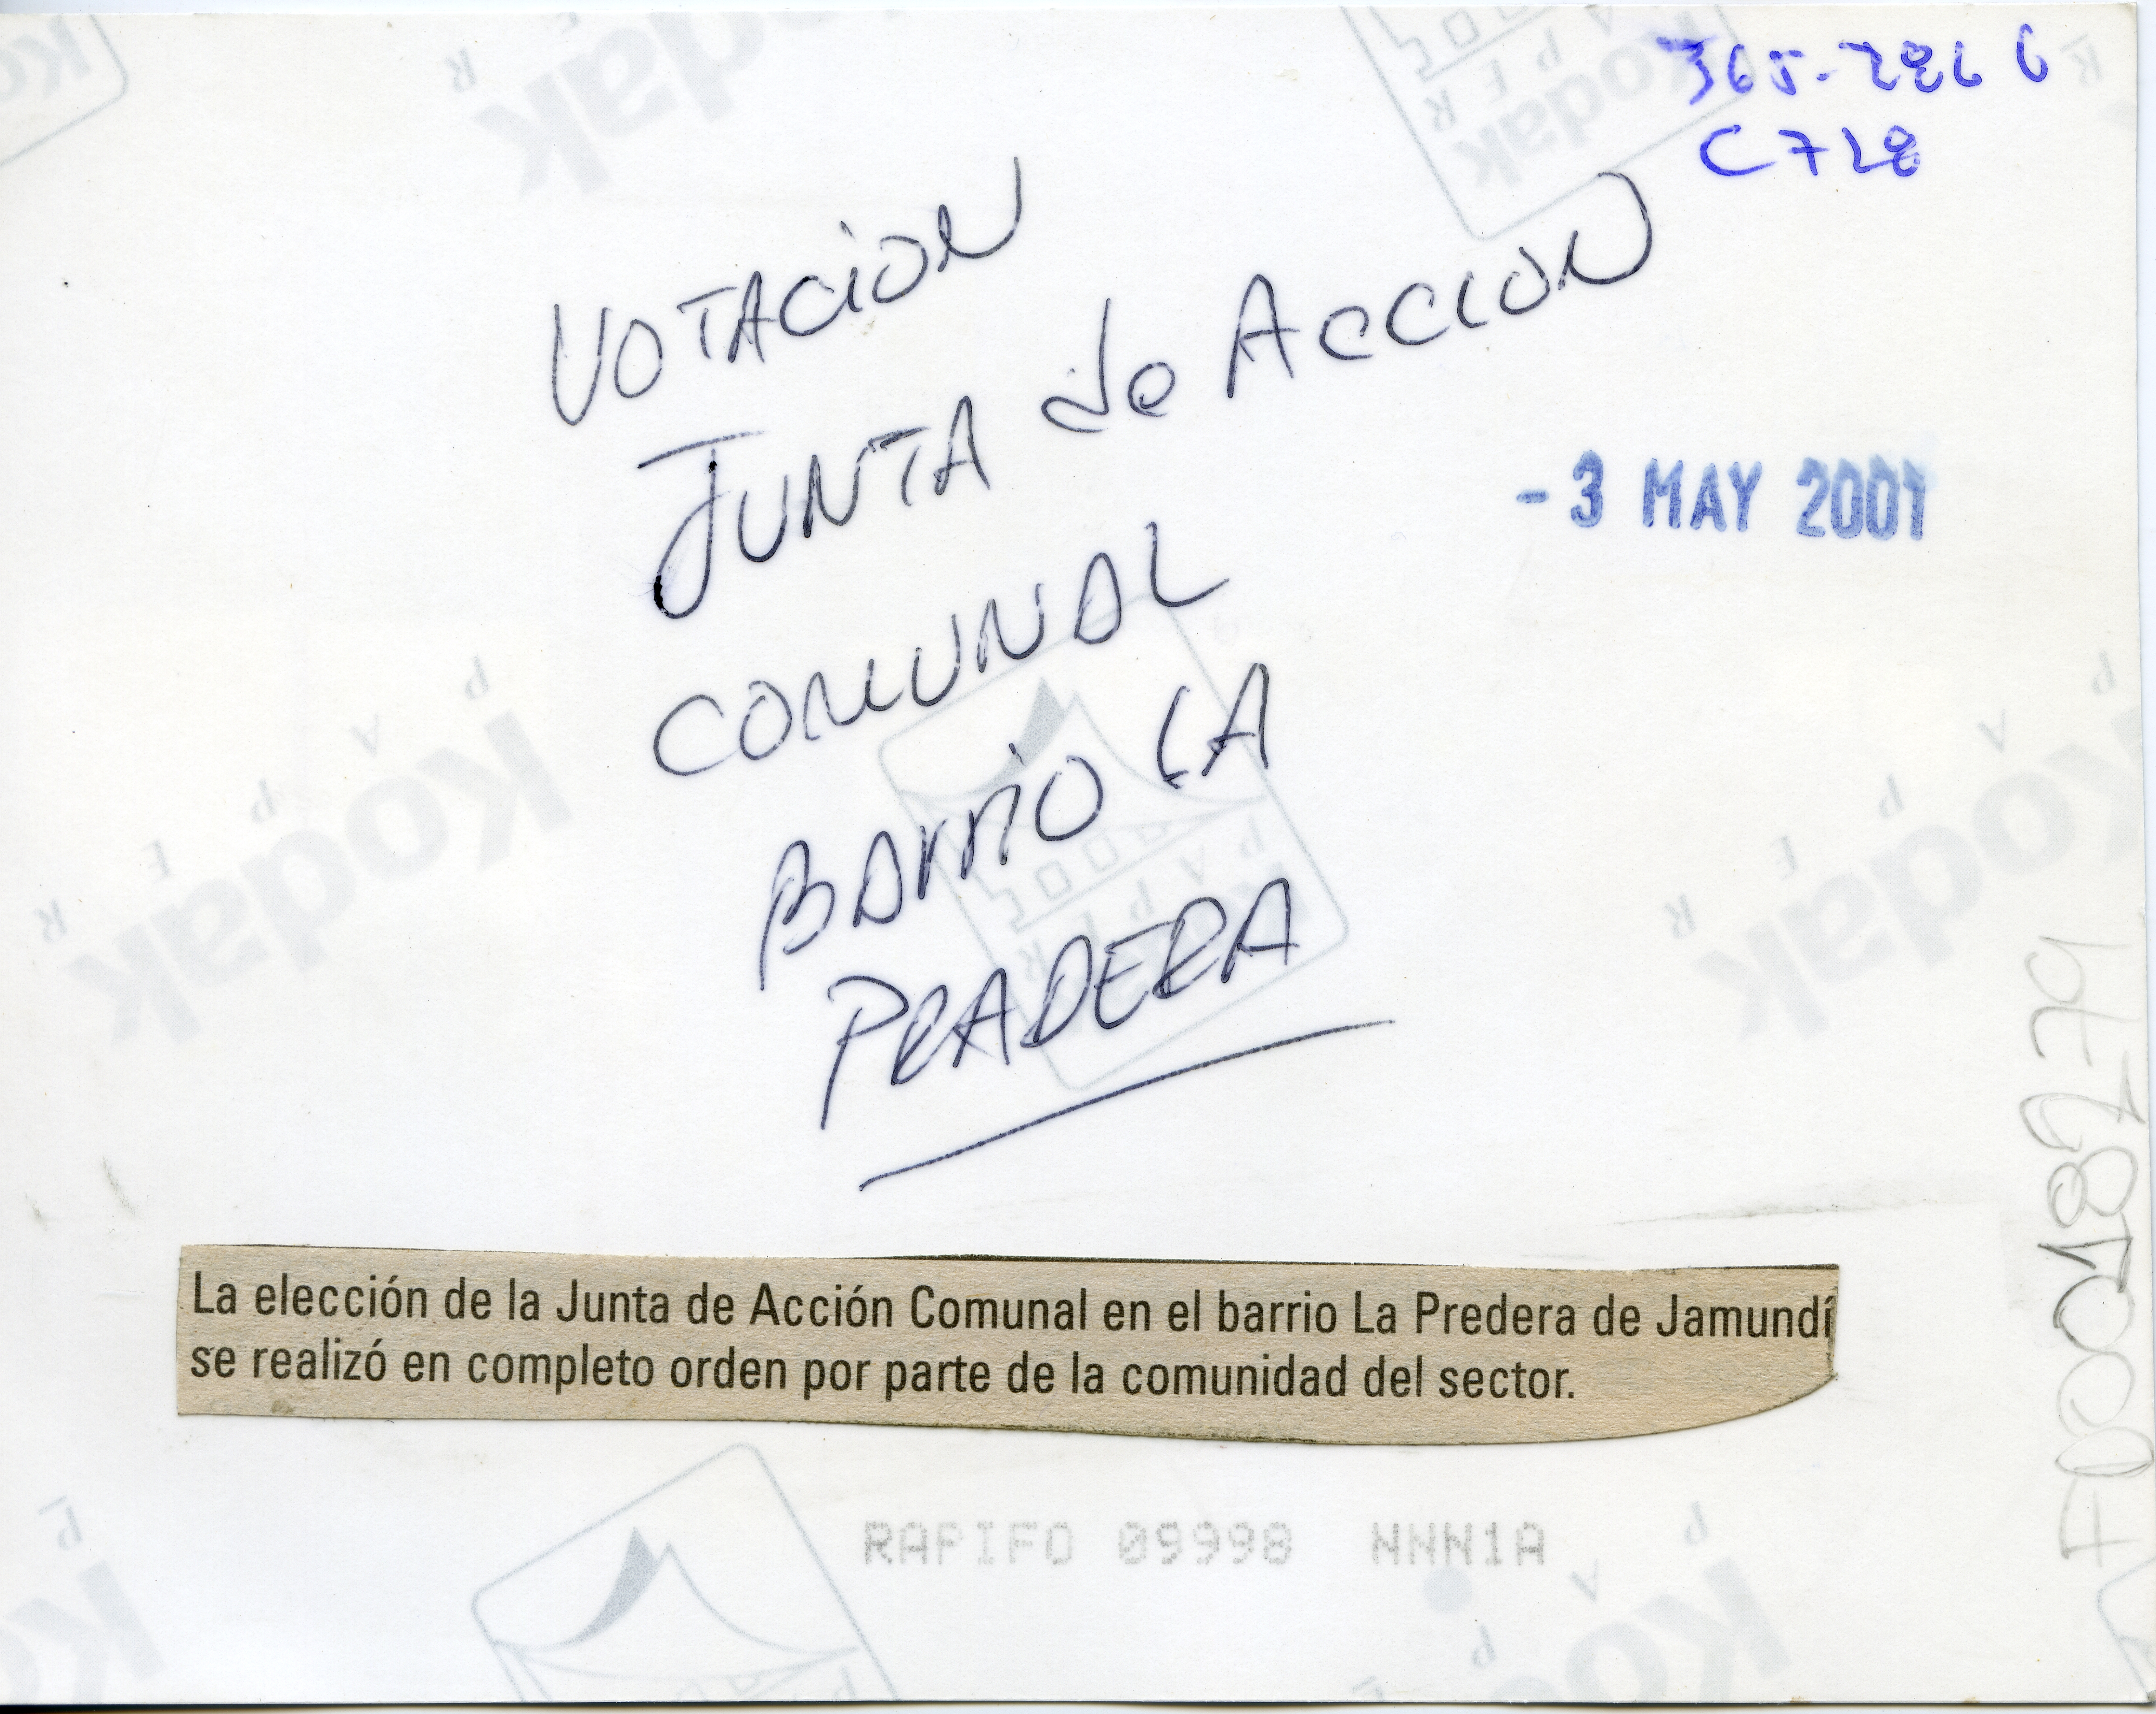 365-286 6
C728
VOTACION
JUNTA de ACCION
COMUNAL
BARRIO LA
PRADERA
- 3 MAY 2001
La elección de la Junta de Acción Comunal en el barrio La Predera de Jamundí
se realizó en completo orden por parte de la comunidad del sector.
RAPIFO 09998 NNN1A
Kodak
PAPER